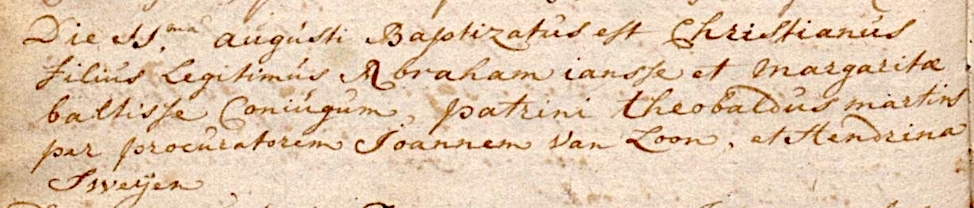 Die 11.ma augústi Baptizatús est Christianús
filius Legitimús Abraham iansse et margaritæ
baltisse Coniúgum, patrini theobaldús martins
per procúratorem Joannem Van Loon, et Hendrina
Sweijen